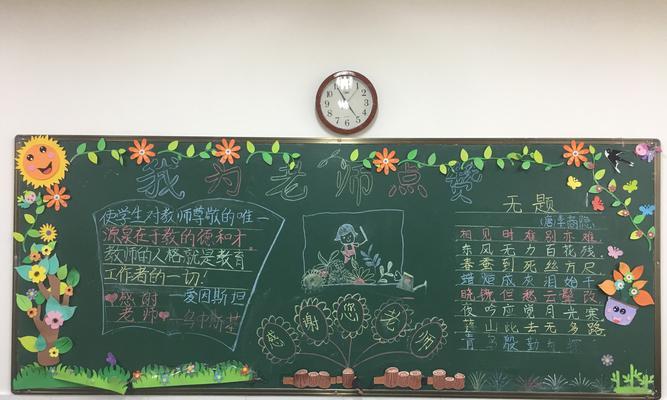 我为老师点赞
使学生对教师尊敬的唯一
源泉在于教的德和才。
教师的人格就是教育
工作者的一切!
—爱因斯坦
老师
—乌申斯基
感谢您老师
无题
(唐李商隐)
相见时难别亦难
东风无力百花残
春蚕到死丝方尽
蜡炬成灰泪始干
晓镜但愁云鬓改
夜吟应觉月光寒
蓬山此去无多路
青鸟殷勤